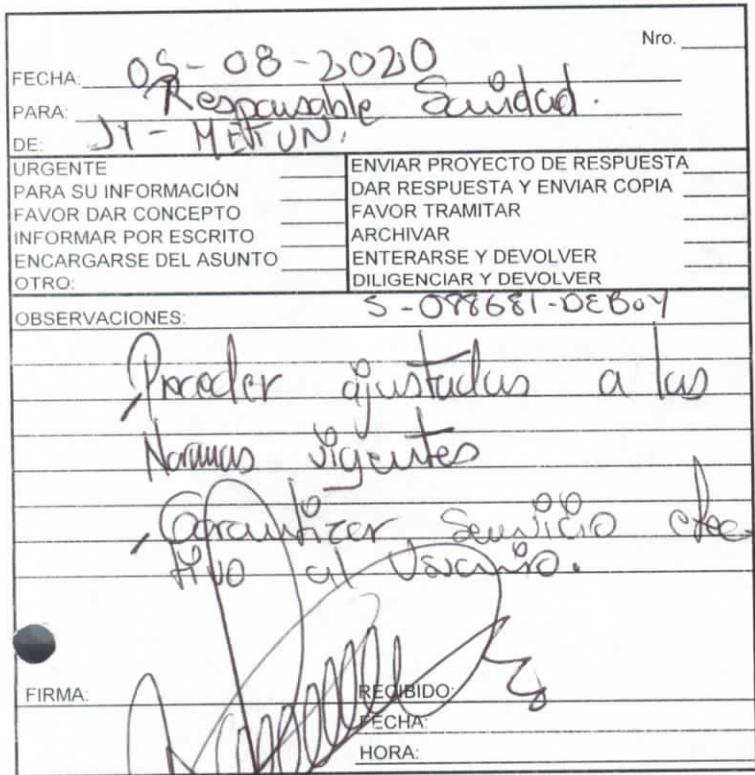 Nro.
FECHA: 05-08-2020
PARA: Responsable Sanidad.
DE: JY - METUN.
URGENTE
PARA SU INFORMACIÓN
FAVOR DAR CONCEPTO
INFORMAR POR ESCRITO
ENCARGARSE DEL ASUNTO
OTRO:
ENVIAR PROYECTO DE RESPUESTA
DAR RESPUESTA Y ENVIAR COPIA
FAVOR TRAMITAR
ARCHIVAR
ENTERARSE Y DEVOLVER
DILIGENCIAR Y DEVOLVER
OBSERVACIONES: S-088681-DEBOY
, Proceder ajustadas a las
Normas vigentes
, Garantizar Servicio efec-
tivo al Usuario.
FIRMA:
RECIBIDO:
FECHA:
HORA: